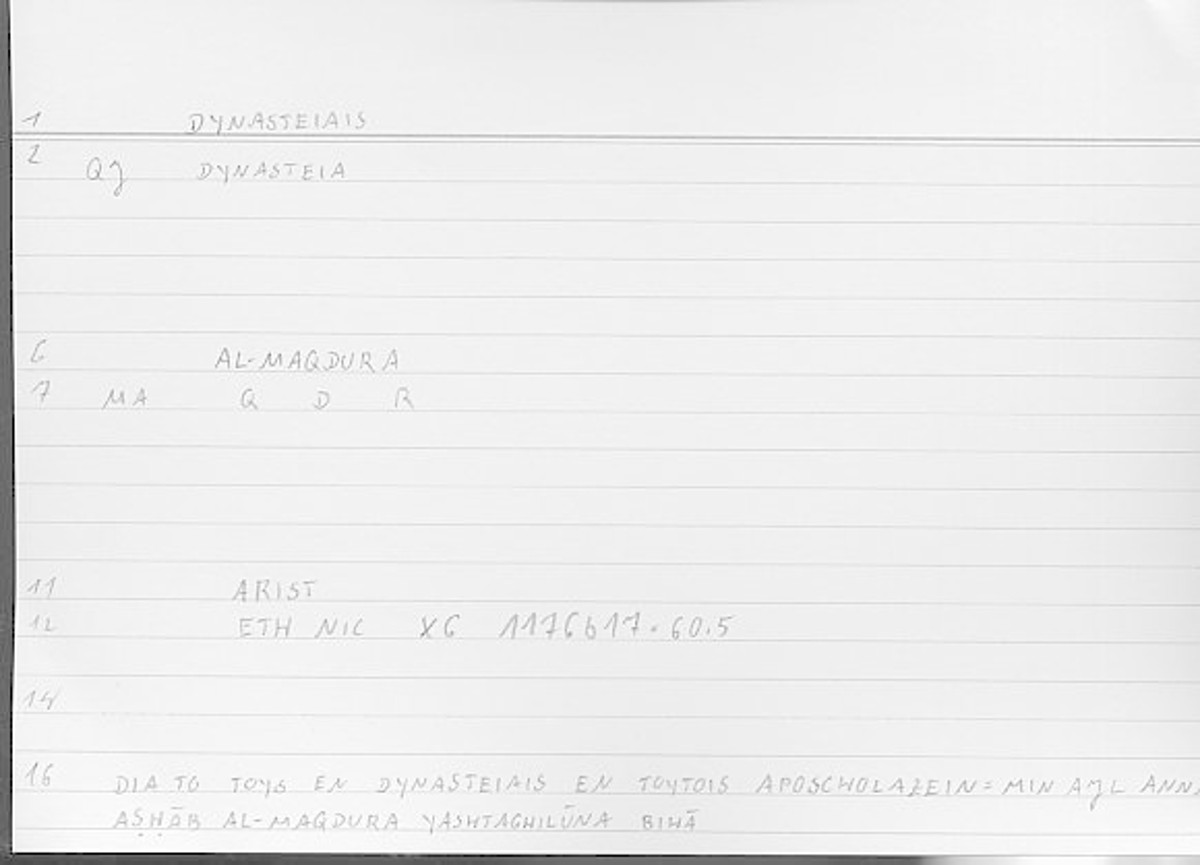 1 DYNASTEIAIS
2 Qȷ DYNASTEIA
6 AL-MAQDURA
7 MA Q D R
11 ARIST
12 ETH NIC X6 1176b17. 60.5
14
16 DIA TO TOYS EN DYNASTEIAIS EN TOYTOIS APOSCHOLAZEIN = MIN AJL ANN
AṢḤĀB AL-MAQDURA YASHTAGHILŪNA BIHĀ